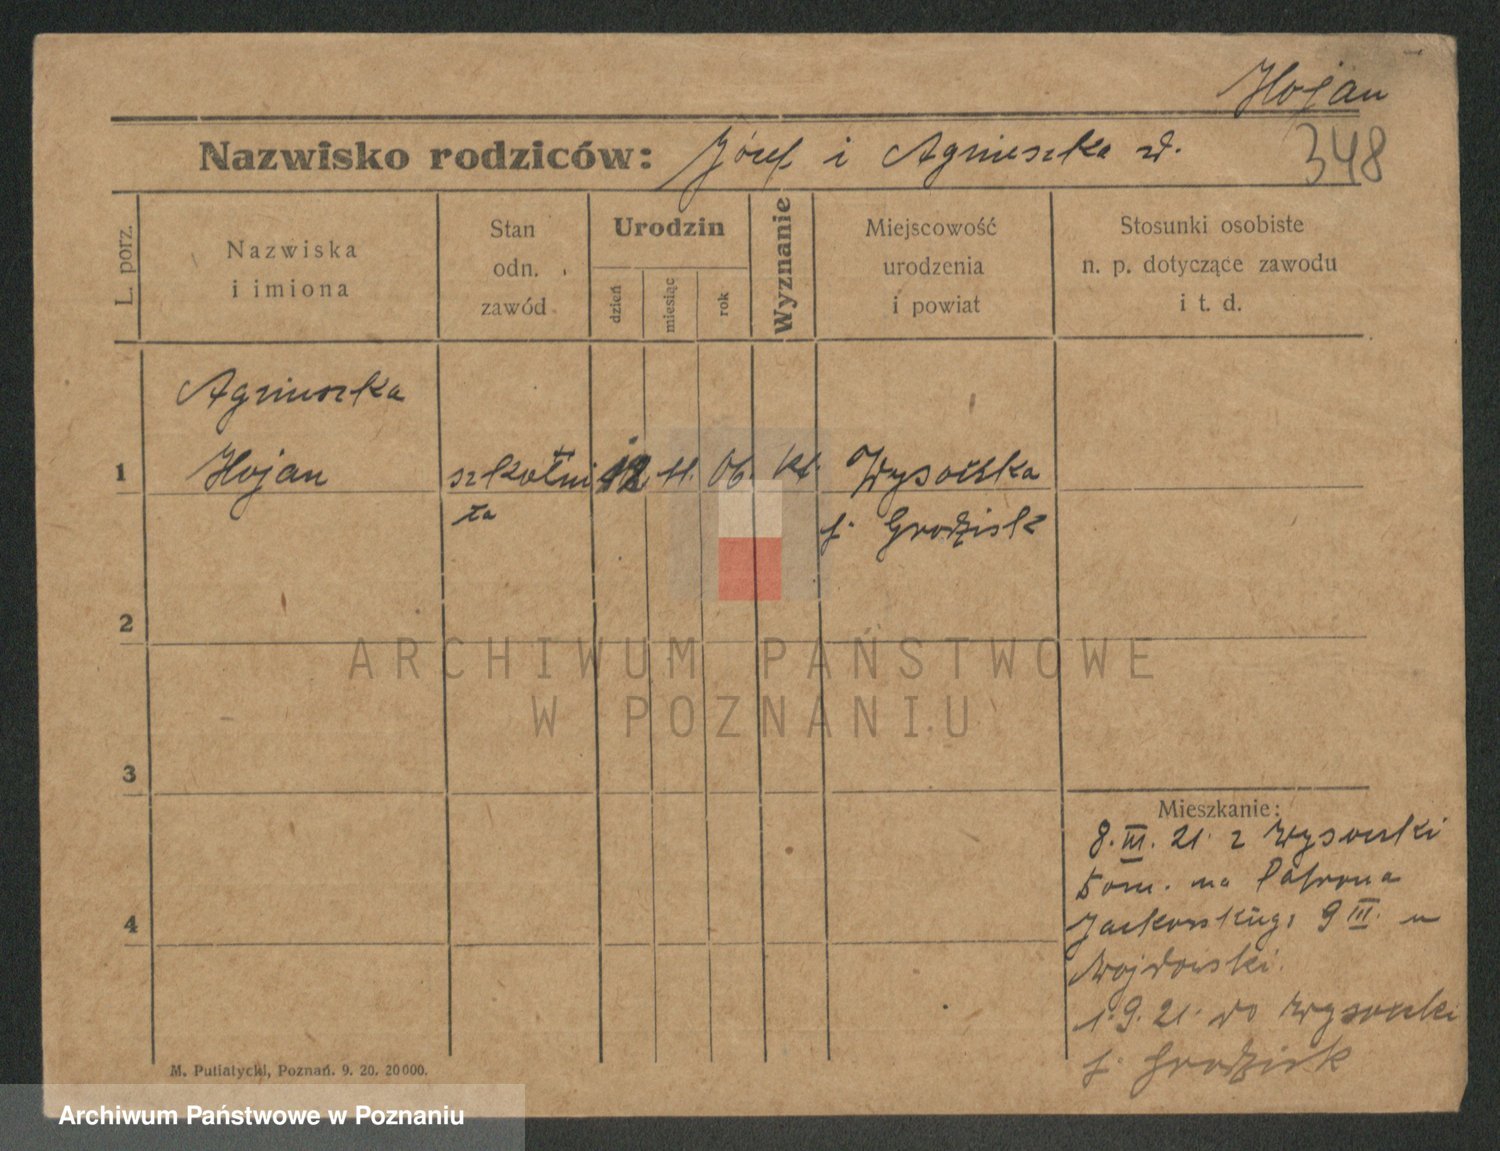 Hojan
Nazwisko rodziców: Józef i Agnieszka
348
L. porz.
Nazwiska
i imiona
Stan
odn.
zawód
Urodzin
dzień
miesiąc
rok
Wyznanie
Miejscowość
urodzenia
i powiat
Stosunki osobiste
n. p. dotyczące zawodu
i t. d.
Agnieszka
1 Hojan szkolni 12 11. 06. kt. Wysoczka
p. Grodzisk
2
ARCHIWUM PAŃSTWOWE
W POZNANIU
3
Mieszkanie:
8. III. 21. z Wysoczki
na Patrona
4
9 III. u
1. 9. 21. do Wysoczki
p. Grodzisk
M. Putiatycki, Poznań. 9. 20. 20000.
Archiwum Państwowe w Poznaniu